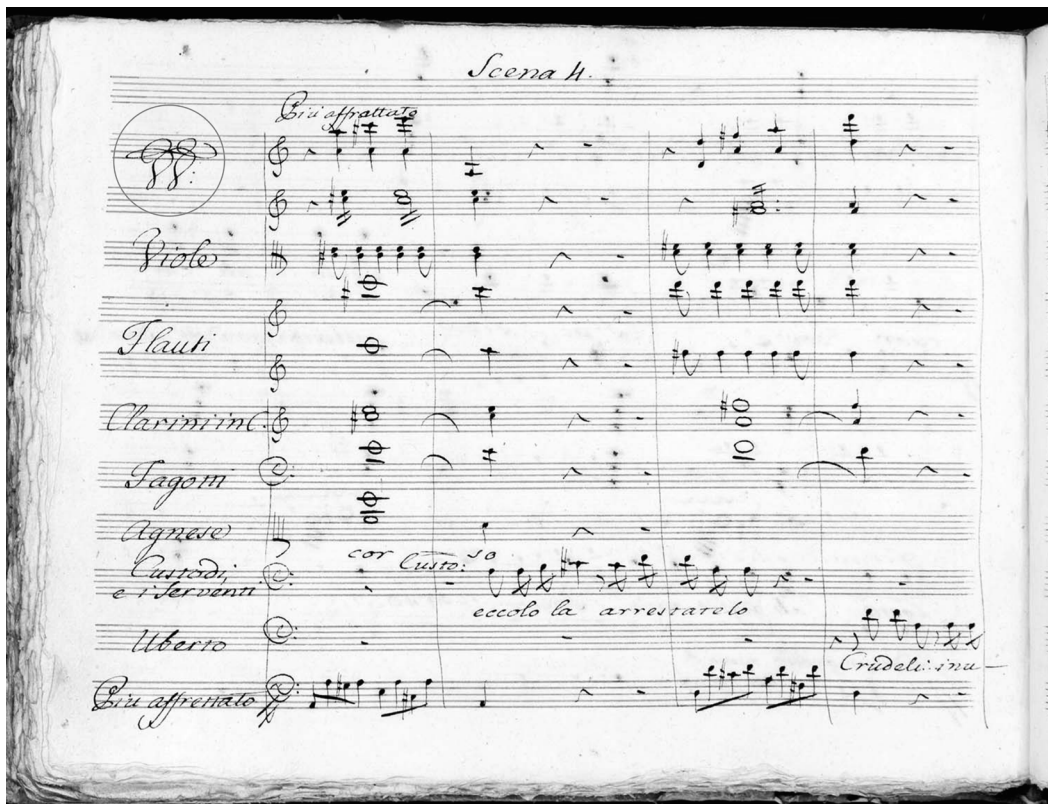 Scena 4.
Più affrattato
VV:
Viole
Flauti
Clarini in C.
Fagotti
Agnese
cor so
Custo:
Custodi,
e i Serventi
eccolo la arrestatelo
Uberto
Crudeli: inu-
Più affrettato